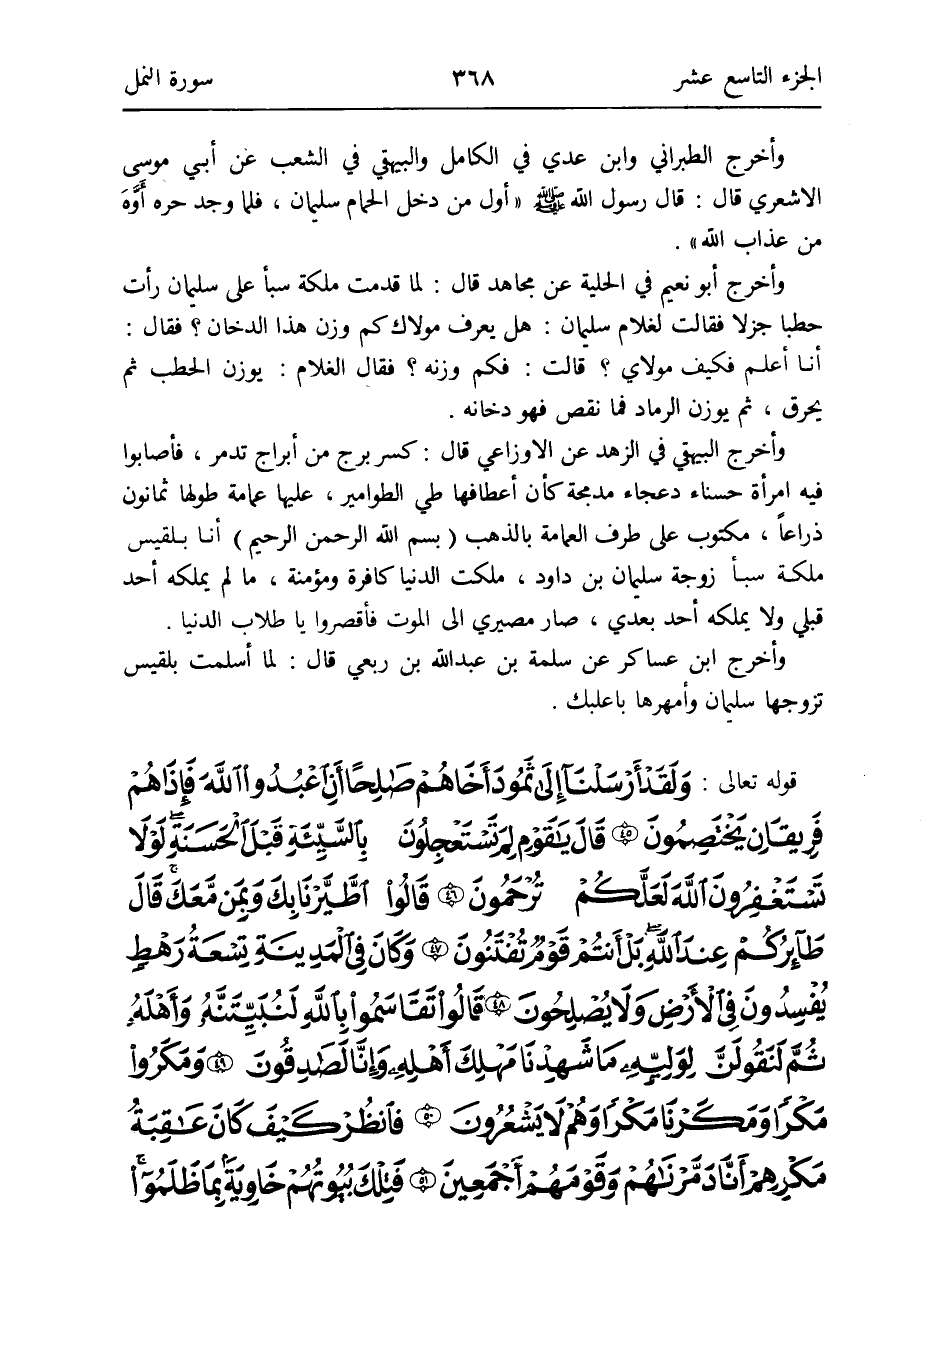 الجزء التاسع عشر ٣٦٨ سورة النمل
وأخرج الطبراني وابن عدي في الكامل والبيهقي في الشعب عن أبي موسى
الاشعري قال : قال رسول الله ﷺ « أول من دخل الحمام سليمان ، فلما وجد حره أَوَّهَ
من عذاب الله » .
وأخرج أبو نعيم في الحلية عن مجاهد قال : لما قدمت ملكة سبأ على سليمان رأت
حطبا جزلا فقالت لغلام سليمان : هل يعرف مولاك كم وزن هذا الدخان ؟ فقال :
أنا أعلم فكيف مولاي ؟ قالت : فكم وزنه ؟ فقال الغلام : يوزن الحطب ثم
يحرق ، ثم يوزن الرماد فما نقص فهو دخانه .
وأخرج البيهقي في الزهد عن الاوزاعي قال : كسر برج من أبراج تدمر ، فأصابوا
فيه امرأة حسناء دعجاء مدمجة كأن أعطافها طي الطوامير ، عليها عمامة طولها ثمانون
ذراعاً ، مكتوب على طرف العمامة بالذهب ( بسم الله الرحمن الرحيم ) أنا بلقيس
ملكة سبأ زوجة سليمان بن داود ، ملكت الدنيا كافرة ومؤمنة ، ما لم يملكه أحد
قبلي ولا يملكه أحد بعدي ، صار مصيري الى الموت فأقصروا يا طلاب الدنيا .
وأخرج ابن عساكر عن سلمة بن عبدالله بن ربعي قال : لما أسلمت بلقيس
تزوجها سليمان وأمهرها باعلبك .
قوله تعالى : وَلَقَدْ أَرْسَلْنَآ إِلَىٰ ثَمُودَ أَخَاهُمْ صَٰلِحًا أَنِ ٱعْبُدُوا۟ ٱللَّهَ فَإِذَا هُمْ
فَرِيقَانِ يَخْتَصِمُونَ ۝٤٥ قَالَ يَٰقَوْمِ لِمَ تَسْتَعْجِلُونَ بِٱلسَّيِّئَةِ قَبْلَ ٱلْحَسَنَةِ ۖ لَوْلَا
تَسْتَغْفِرُونَ ٱللَّهَ لَعَلَّكُمْ تُرْحَمُونَ ۝٤٦ قَالُوا۟ ٱطَّيَّرْنَا بِكَ وَبِمَن مَّعَكَ ۚ قَالَ
طَٰٓئِرُكُمْ عِندَ ٱللَّهِ ۖ بَلْ أَنتُمْ قَوْمٌ تُفْتَنُونَ ۝٤٧ وَكَانَ فِى ٱلْمَدِينَةِ تِسْعَةُ رَهْطٍ
يُفْسِدُونَ فِى ٱلْأَرْضِ وَلَا يُصْلِحُونَ ۝٤٨ قَالُوا۟ تَقَاسَمُوا۟ بِٱللَّهِ لَنُبَيِّتَنَّهُۥ وَأَهْلَهُۥ
ثُمَّ لَنَقُولَنَّ لِوَلِيِّهِۦ مَا شَهِدْنَا مَهْلِكَ أَهْلِهِۦ وَإِنَّا لَصَٰدِقُونَ ۝٤٩ وَمَكَرُوا۟
مَكْرًا وَمَكَرْنَا مَكْرًا وَهُمْ لَا يَشْعُرُونَ ۝٥٠ فَٱنظُرْ كَيْفَ كَانَ عَٰقِبَةُ
مَكْرِهِمْ أَنَّا دَمَّرْنَٰهُمْ وَقَوْمَهُمْ أَجْمَعِينَ ۝٥١ فَتِلْكَ بُيُوتُهُمْ خَاوِيَةًۢ بِمَا ظَلَمُوٓا۟ ۗ